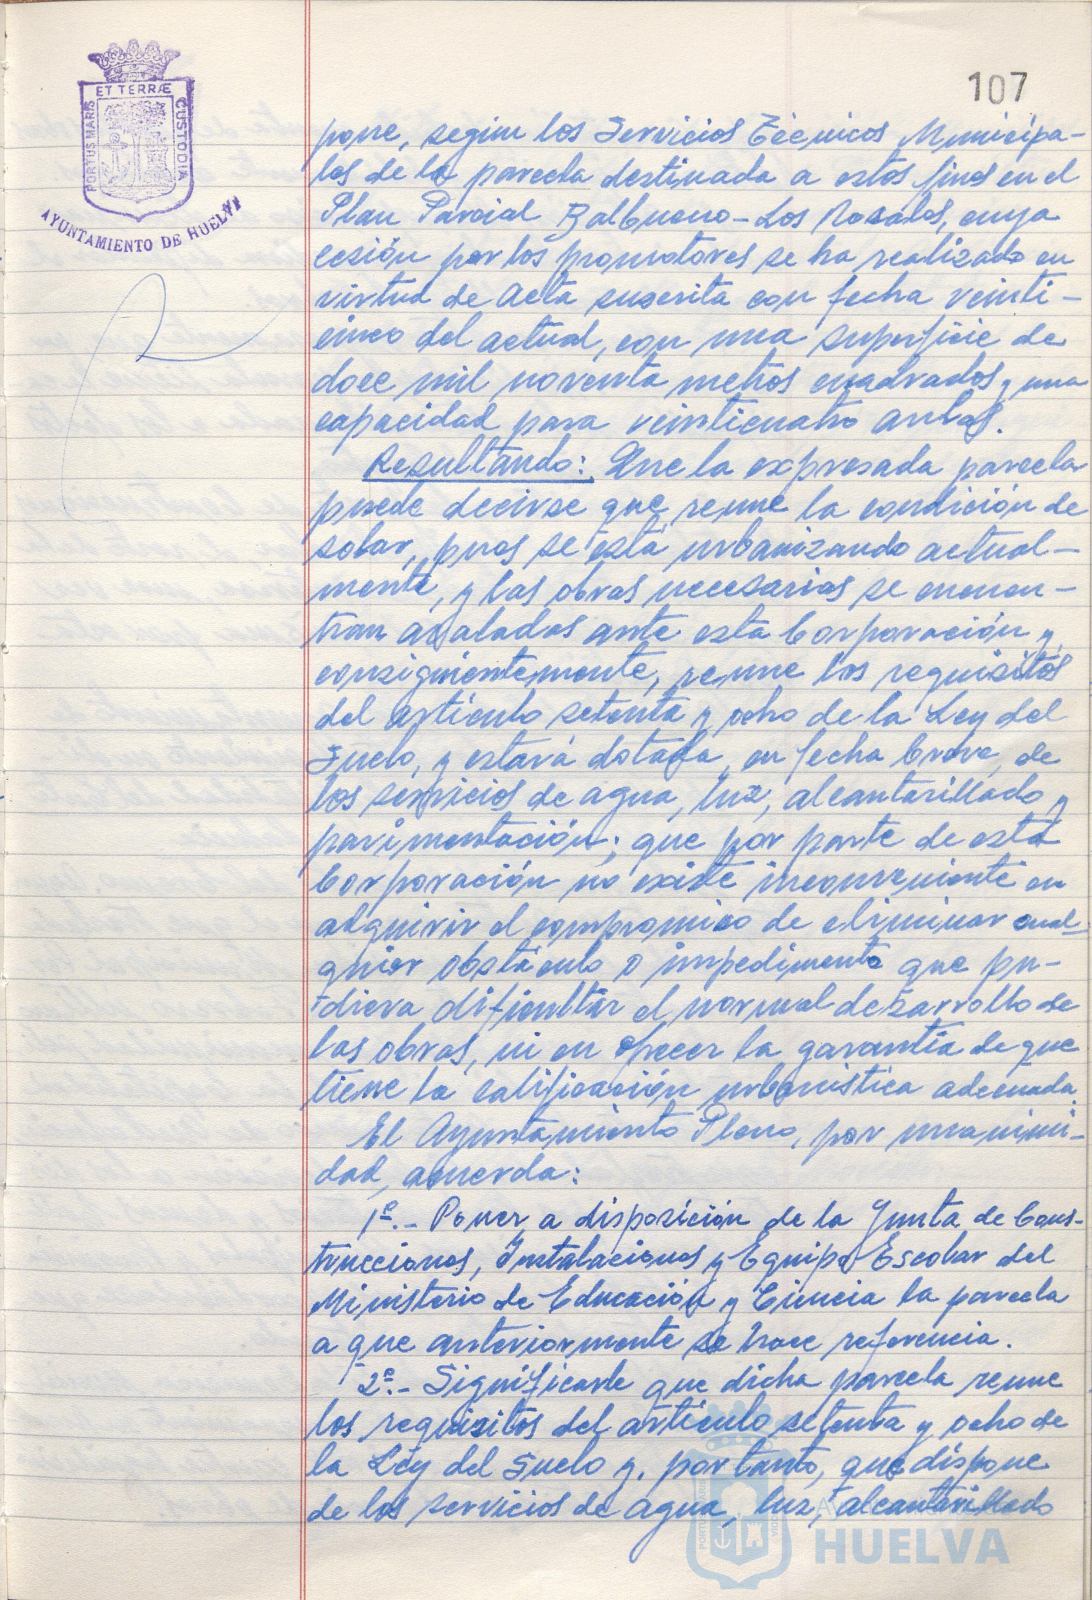 107
ET TERRÆ
PORTUS MARIS
CUSTODIA
AYUNTAMIENTO DE HUELVA
pone, según los Servicios Técnicos Municipa-
les de la parcela destinada a estos fines en el
Plan Parcial Balbueno-Los Rosales, cuya
cesión por los promotores se ha realizado en
virtud de Acta suscrita con fecha veinti-
cinco del actual, con una superficie de
doce mil noventa metros cuadrados y una
capacidad para veinticuatro aulas.
Resultando: Que la expresada parcela
puede decirse que reune la condición de
solar, pues se está urbanizando actual-
mente, y las obras necesarias se encuen-
tran avaladas ante esta Corporación y,
consiguientemente, reune los requisitos
del artículo setenta y ocho de la Ley del
Suelo, y estará dotada, en fecha breve, de
los servicios de agua, luz, alcantarillado y
pavimentación; que por parte de esta
Corporación no existe inconveniente en
adquirir el compromiso de eliminar cual-
quier obstáculo o impedimento que pu-
diera dificultar el normal desarrollo de
las obras, ni en ofrecer la garantía de que
tiene la calificación urbanística adecuada.
El Ayuntamiento Pleno, por unanimi-
dad, acuerda:
1º.- Poner a disposición de la Junta de Cons-
trucciones, Instalaciones y Equipo Escolar del
Ministerio de Educación y Ciencia la parcela
a que anteriormente se hace referencia.
2º.- Significarle que dicha parcela reune
los requisitos del artículo setenta y ocho de
la Ley del Suelo y, por tanto, que dispone
de los servicios de agua, luz, alcantarillado
HUELVA